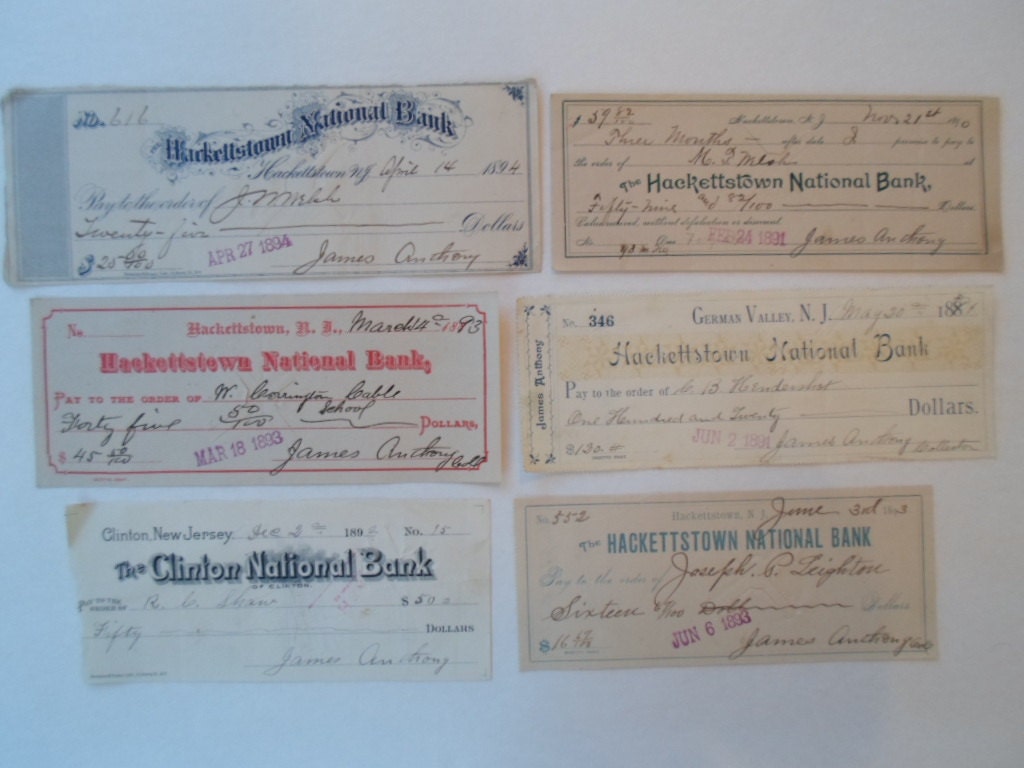 No. 616
Hackettstown National Bank
Hackettstown N.J. April 14 1894
Pay to the order of J. M Welsh
Twenty-five Dollars
$25 00/100 James Anthony
APR 27 1894
$59 82/100 Hackettstown, N. J. Nov 21st 1890
Three Months after date I promise to pay to
the order of M. P. Welsh at
The Hackettstown National Bank,
Fifty-nine and 82/100 Dollars
without defalcation or discount
No. Due FEB 24 1891 James Anthony
No. Hackettstown, N. J., March 14 1893
Hackettstown National Bank,
PAY TO THE ORDER OF W. Cable
Forty five 50/100 School DOLLARS,
$45 50/100 MAR 18 1893 James Anthony Coll
James Anthony
No. 346 GERMAN VALLEY, N. J. May 20 1891
Hackettstown National Bank
Pay to the order of C. B. Hendershot
One Hundred and Twenty Dollars.
$120 JUN 2 1891 James Anthony Collector
Clinton, New Jersey, Dec 2 1892 No. 15
The Clinton National Bank
OF CLINTON.
PAY TO THE ORDER OF R. C. Shaw $50
Fifty DOLLARS
James Anthony
No. 552 Hackettstown, N. J. June 3rd 1893
The HACKETTSTOWN NATIONAL BANK
Pay to the order of Joseph. P. Leighton
Sixteen Dollars
$16 JUN 6 1893 James Anthony Coll